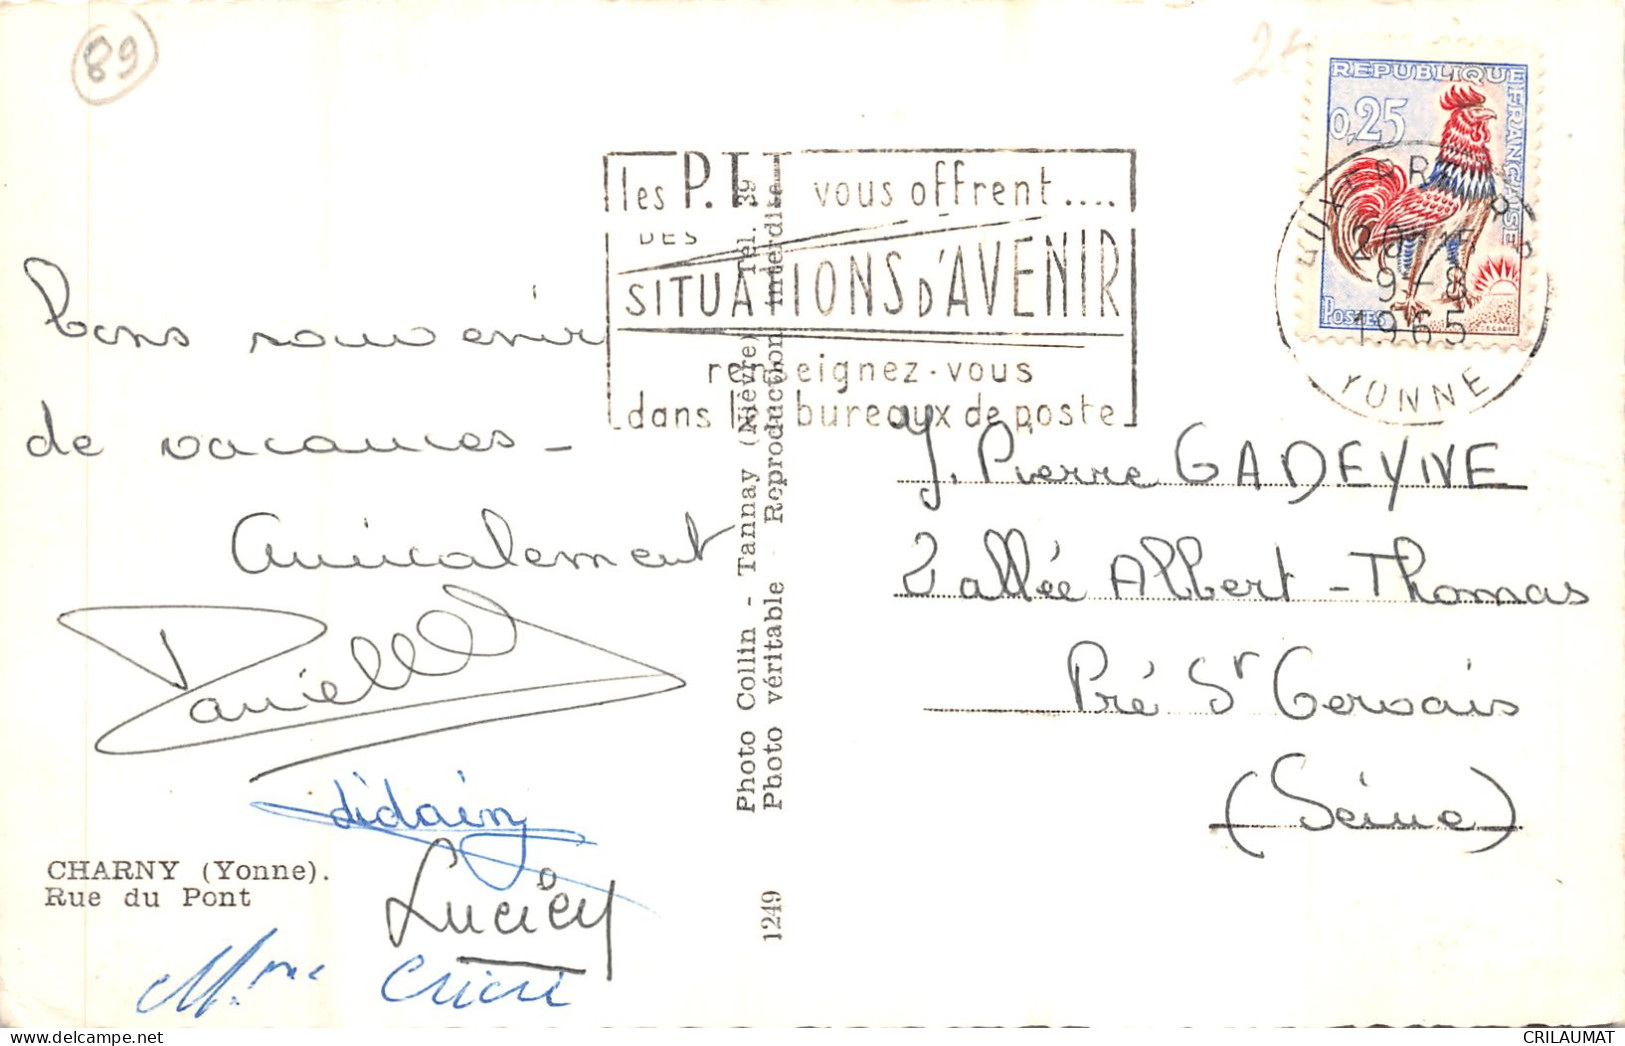 89
Bons souvenirs
de vacances -
Amicalement
Danielle
didain
Lucien
Mme Cricri
CHARNY (Yonne).
Rue du Pont
Photo Collin - Tannay (Nièvre) Tél. 39
Photo véritable - Reproduction interdite
1249
les P.T.T vous offrent ....
DES
SITUATIONS D'AVENIR
renseignez-vous
dans les bureaux de poste
REPUBLIQUE FRANÇAISE
0,25
POSTES
DECARIS
AUXERRE R.P
20H
9-8
1965
YONNE
J. Pierre GADEYNE
2 allée Albert-Thomas
Pré St Gervais
(Seine)
CRILAUMAT